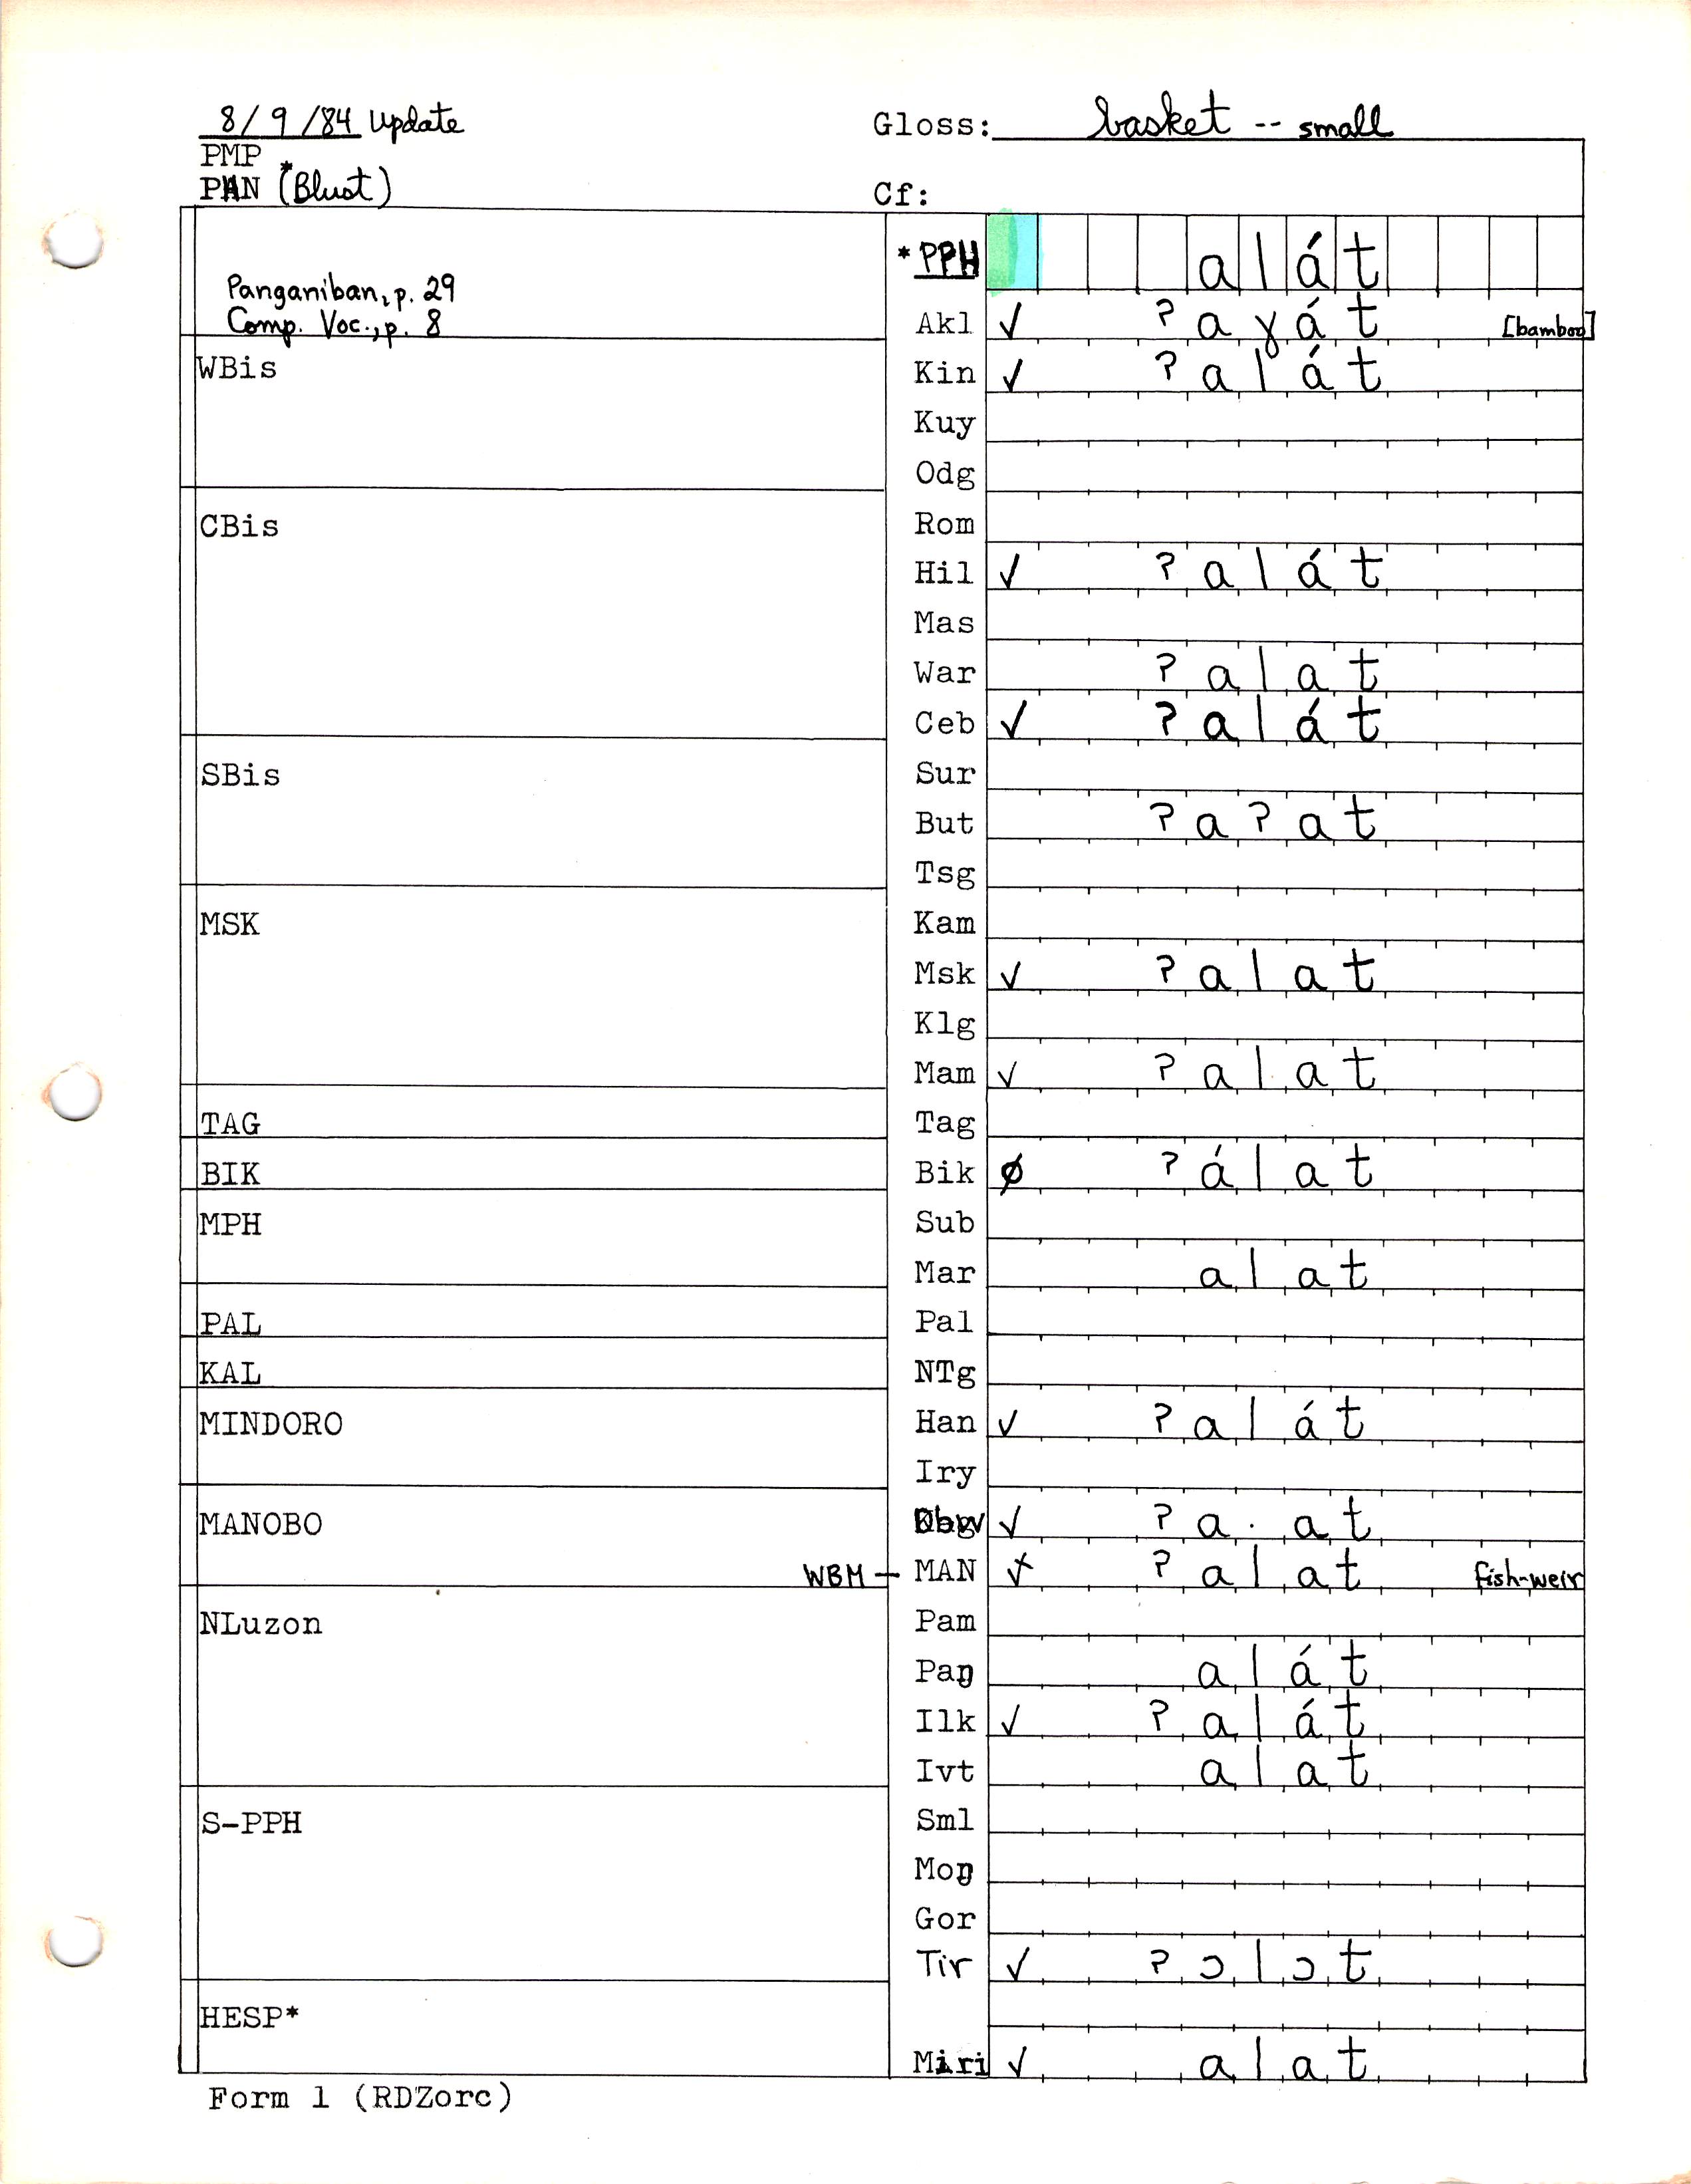 8/9/84 Update
Gloss: basket -- small
PMP
PAN *(Blust)
Cf:
Panganiban, p. 29
Comp. Voc., p. 8
*PPH alát
Akl ✓ ʔaɣát [bamboo]
WBis
Kin ✓ ʔalát
Kuy
Odg
CBis
Rom
Hil ✓ ʔalát
Mas
War ʔalat
Ceb ✓ ʔalát
SBis
Sur
But ʔaʔat
Tsg
MSK
Kam
Msk ✓ ʔalat
Klg
Mam ✓ ʔalat
TAG
Tag
BIK
Bik ∅ ʔálat
MPH
Sub
Mar alat
PAL
Pal
KAL
NTg
MINDORO
Han ✓ ʔalát
Iry
MANOBO
Dbw ✓ ʔa·at
WBM – MAN ʔalat fish-weir
NLuzon
Pam
Paŋ alát
Ilk ✓ ʔalát
Ivt alat
S-PPH
Sml
Moŋ
Gor
Tir ✓ ʔɔlɔt
HESP*
Miri ✓ alat
Form 1 (RDZorc)